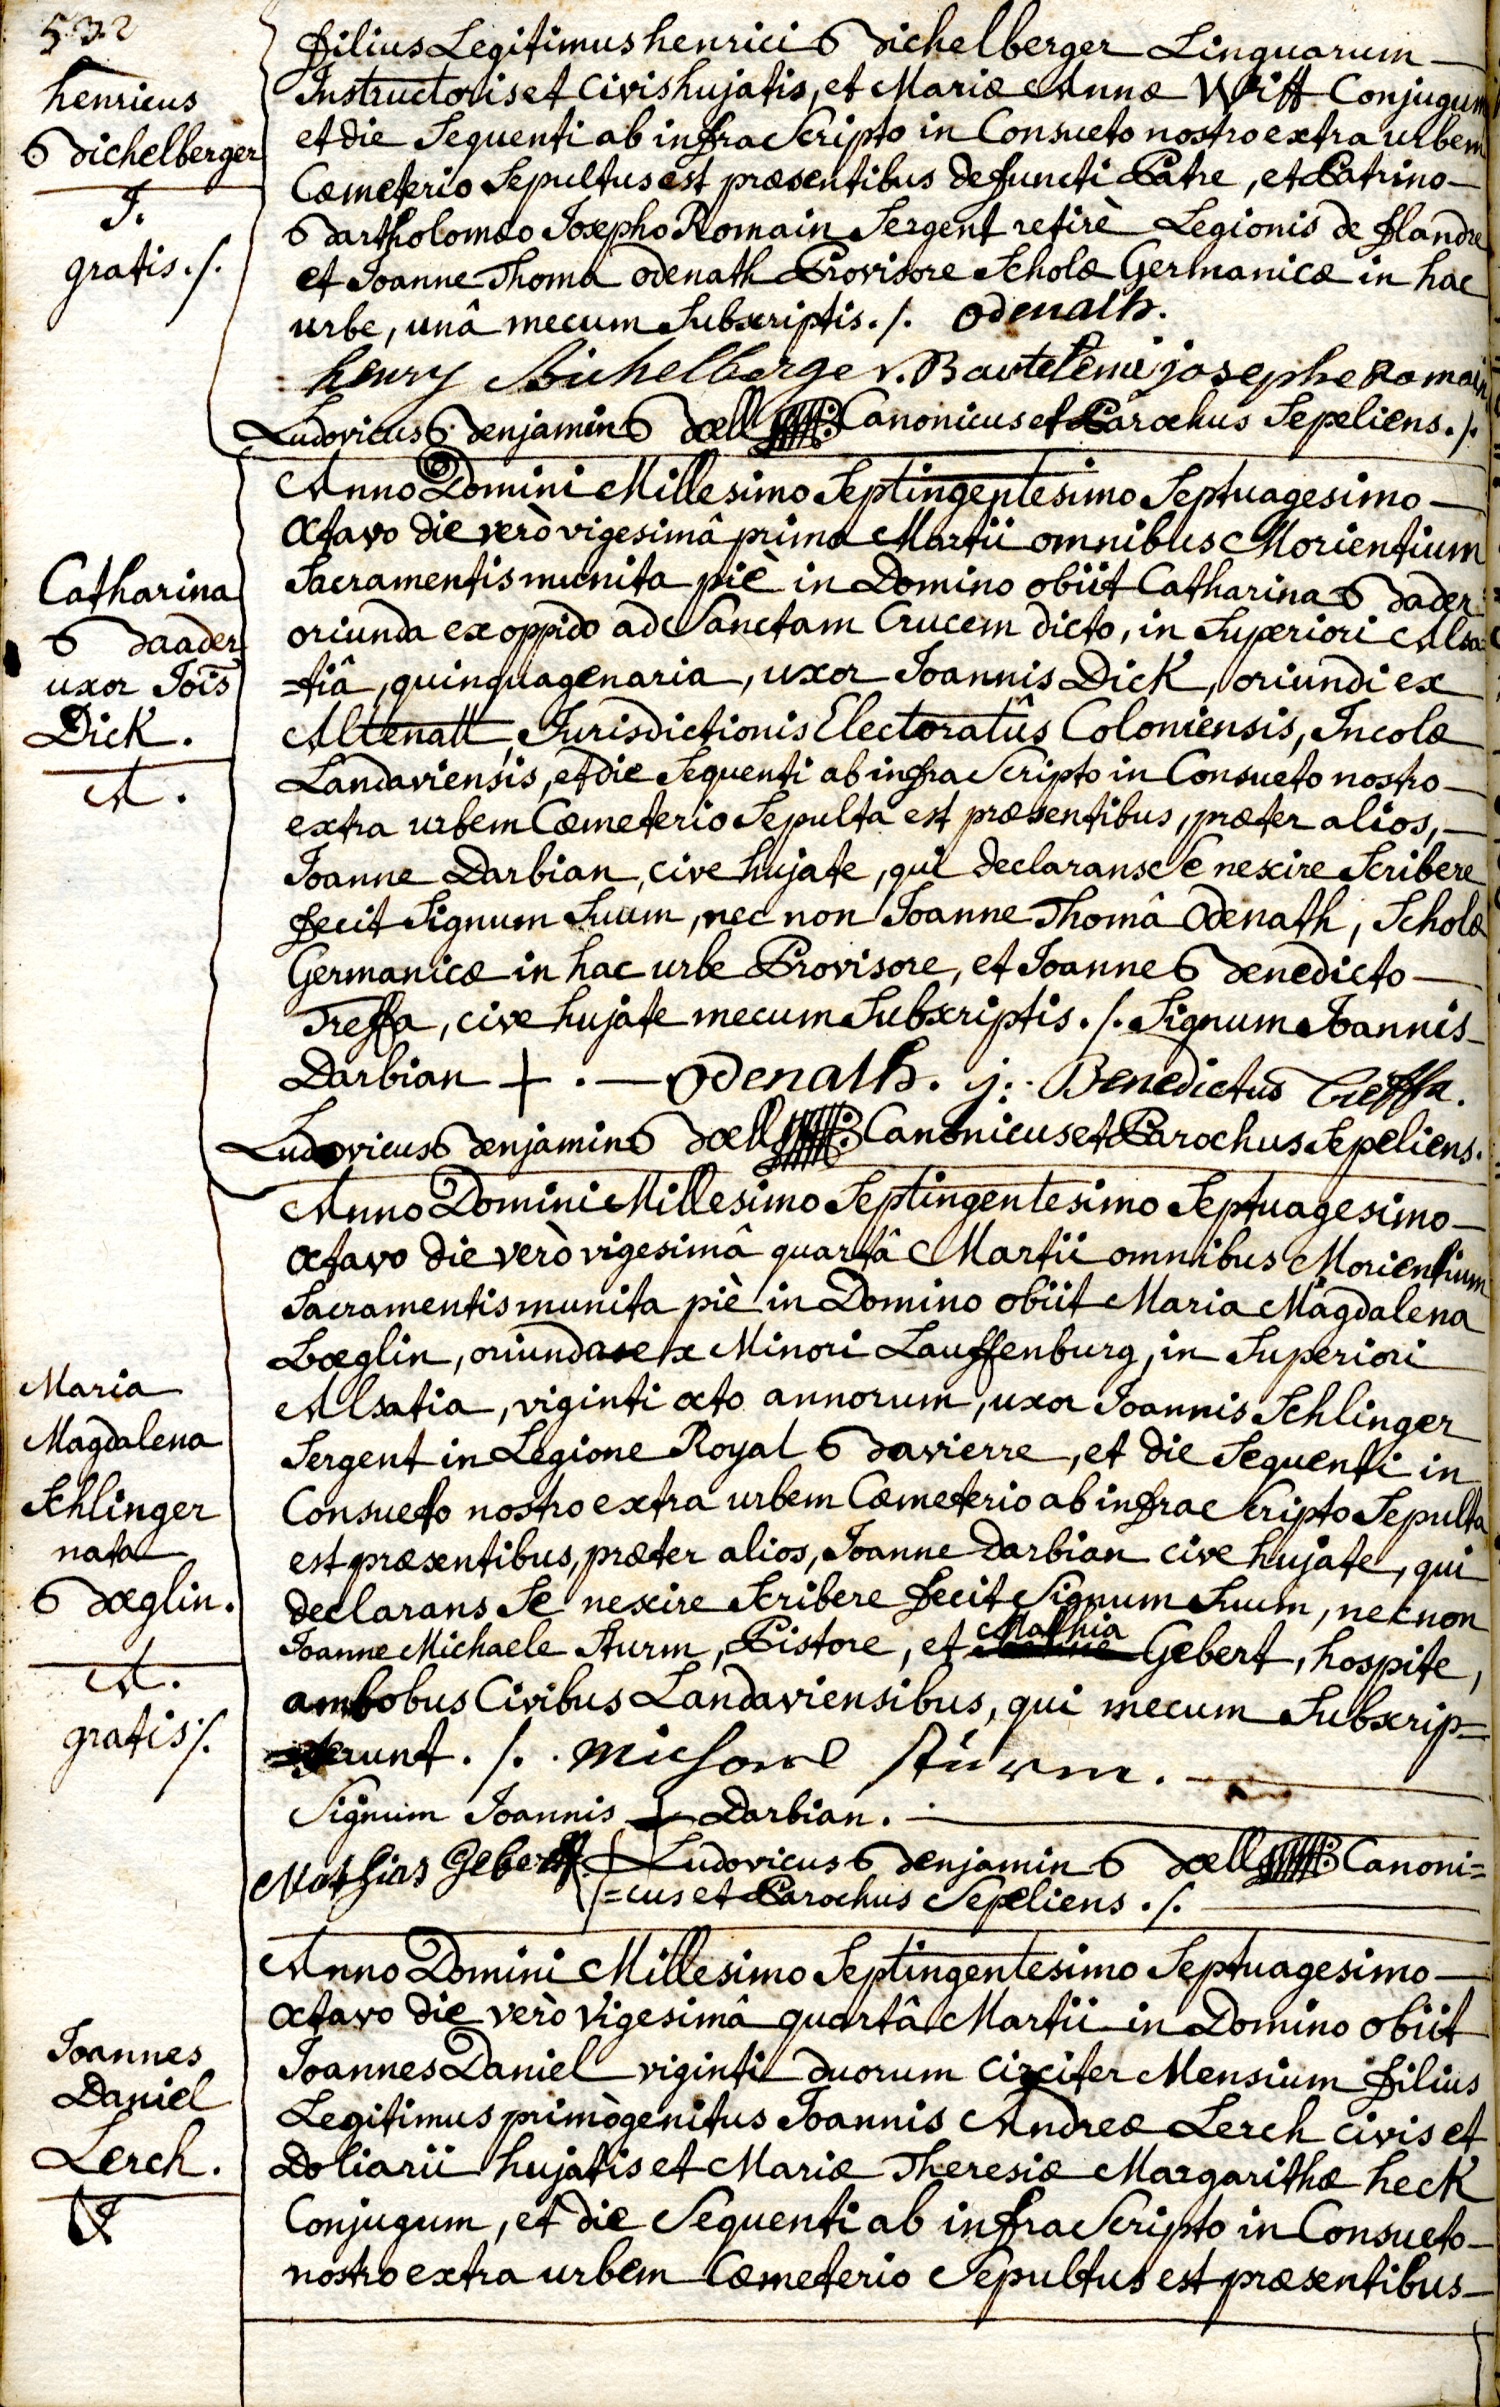 532
filius Legitimus henrici Bichelberger Linguarum
Instructoris et Civis hujatis, et Mariæ Annæ Wift Conjugum
et die Sequenti ab infra Scripto in Consueto nostro extra urbem
Cœmeterio Sepultus est præsentibus defuncti Patre, et Patrino
Bartholomæo Josepho Romain Sergent retirè Legionis de flandre
et Joanne Thoma Odenath Provisore Scholæ Germanicæ in hac
urbe, unâ mecum Subscriptis ./. Odenath.
henry Bichelberger. Bartelemi josephe Romain
Ludovicus Benjamin Bœll Canonicus et Parochus Sepeliens ./.
henricus
Bichelberger
J.
gratis ./.
Anno Domini Millesimo Septingentesimo Septuagesimo
Octavo die verò vigesimâ prima Martii omnibus Morientium
Sacramentis munita piè in Domino obiit Catharina Bader
oriunda ex oppido ad Sanctam Crucem dicto, in Superiori Alsa=
=tiâ, quinquagenaria, uxor Joannis Dick, oriundi ex
Altenatt, Jurisdictionis Electoratûs Coloniensis, Incolæ
Landaviensis, et die Sequenti ab infra Scripto in Consueto nostro
extra urbem Cœmeterio Sepulta est præsentibus, præter alios,
Joanne Darbian, cive hujate, qui declarans Se nescire Scribere
fecit Signum Suum, nec non Joanne Thomâ Odenath, Scholæ
Germanicæ in hac urbe Provisore, et Joanne Benedicto
Treffa, cive hujate mecum Subscriptis ./. Signum Joannis
Darbian + . — Odenath. j: Benedictus Treffa.
Ludovicus Benjamin Bœll Canonicus et Parochus Sepeliens.
Catharina
Baader
uxor Jois
Dick.
A.
Anno Domini Millesimo Septingentesimo Septuagesimo
Octavo die verò vigesimâ quartâ Martii omnibus Morientium
Sacramentis munita piè in Domino obiit Maria Magdalena
Bœglin, oriunda ex Minori Lauffenburg, in Superiori
Alsatia, viginti octo annorum, uxor Joannis Schlinger
Sergent in Legione Royal Bavierre, et die Sequenti in
Consueto nostro extra urbem Cœmeterio ab infra Scripto Sepulta
est præsentibus, præter alios, Joanne Darbian cive hujate, qui
declarans Se nescire Scribere fecit Signum Suum, nec non
Joanne Michaele Sturm, Pistore, et Mathia Gebert, hospite,
ambobus Civibus Landaviensibus, qui mecum Subscrip=
serunt ./. Michael Stürm.
Signum Joannis + Darbian.
Mathias Gebert Ludovicus Benjamin Bœll Canoni=
=cus et Parochus Sepeliens ./.
Maria
Magdalena
Schlinger
nata
Bœglin.
A.
gratis ./.
Anno Domini Millesimo Septingentesimo Septuagesimo
Octavo die verò Vigesimâ quartâ Martii in Domino obiit
Joannes Daniel viginti duorum circiter Mensium filius
Legitimus primògenitus Joannis Andreæ Lerch civis et
Doliarii hujatis et Mariæ Theresiæ Margarithæ heck
Conjugum, et die Sequenti ab infra Scripto in Consueto
nostro extra urbem Cœmeterio Sepultus est præsentibus
Joannes
Daniel
Lerch.
J